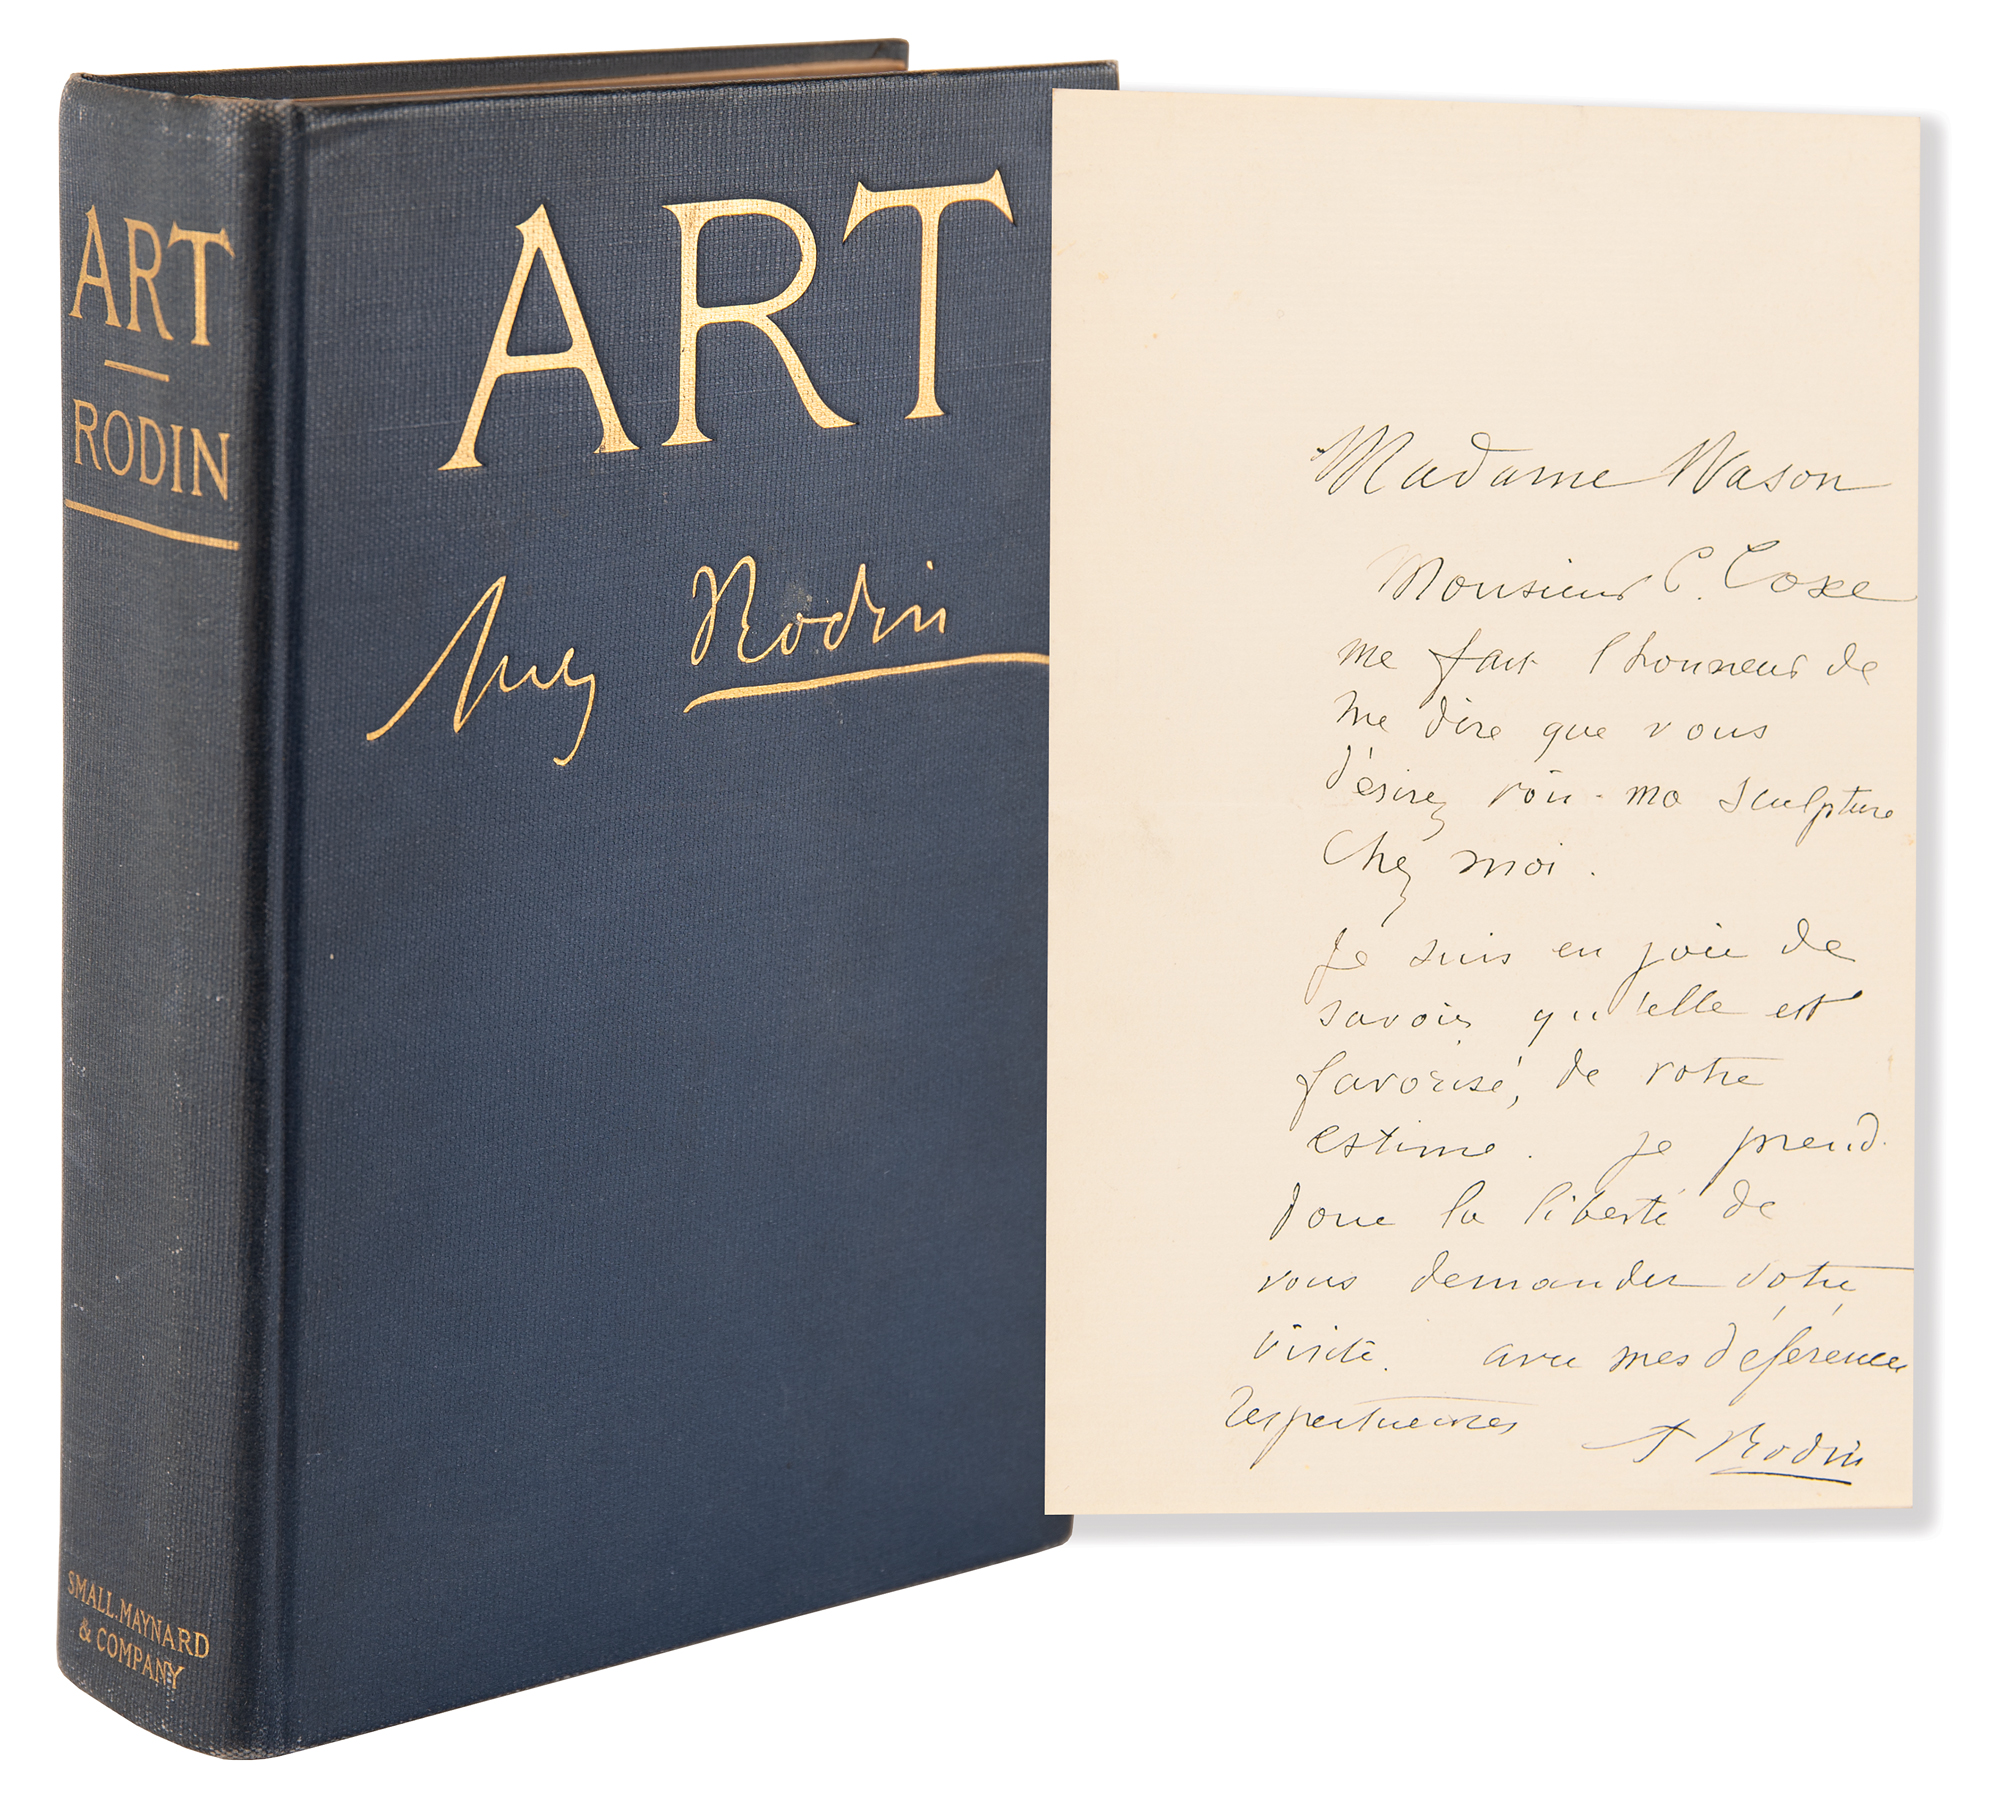 ART
RODIN
SMALL, MAYNARD
& COMPANY
ART
Aug Rodin
Madame Nason
Monsieur C. Coxe
me fait l'honneur de
me dire que vous
désirez voir ma sculpture
chez moi.
Je suis en joie de
savoir qu'elle est
favorisé, de votre
estime. je prend
donc la liberté de
vous demander votre
visite. avec mes déférences
respectueuses
A Rodin